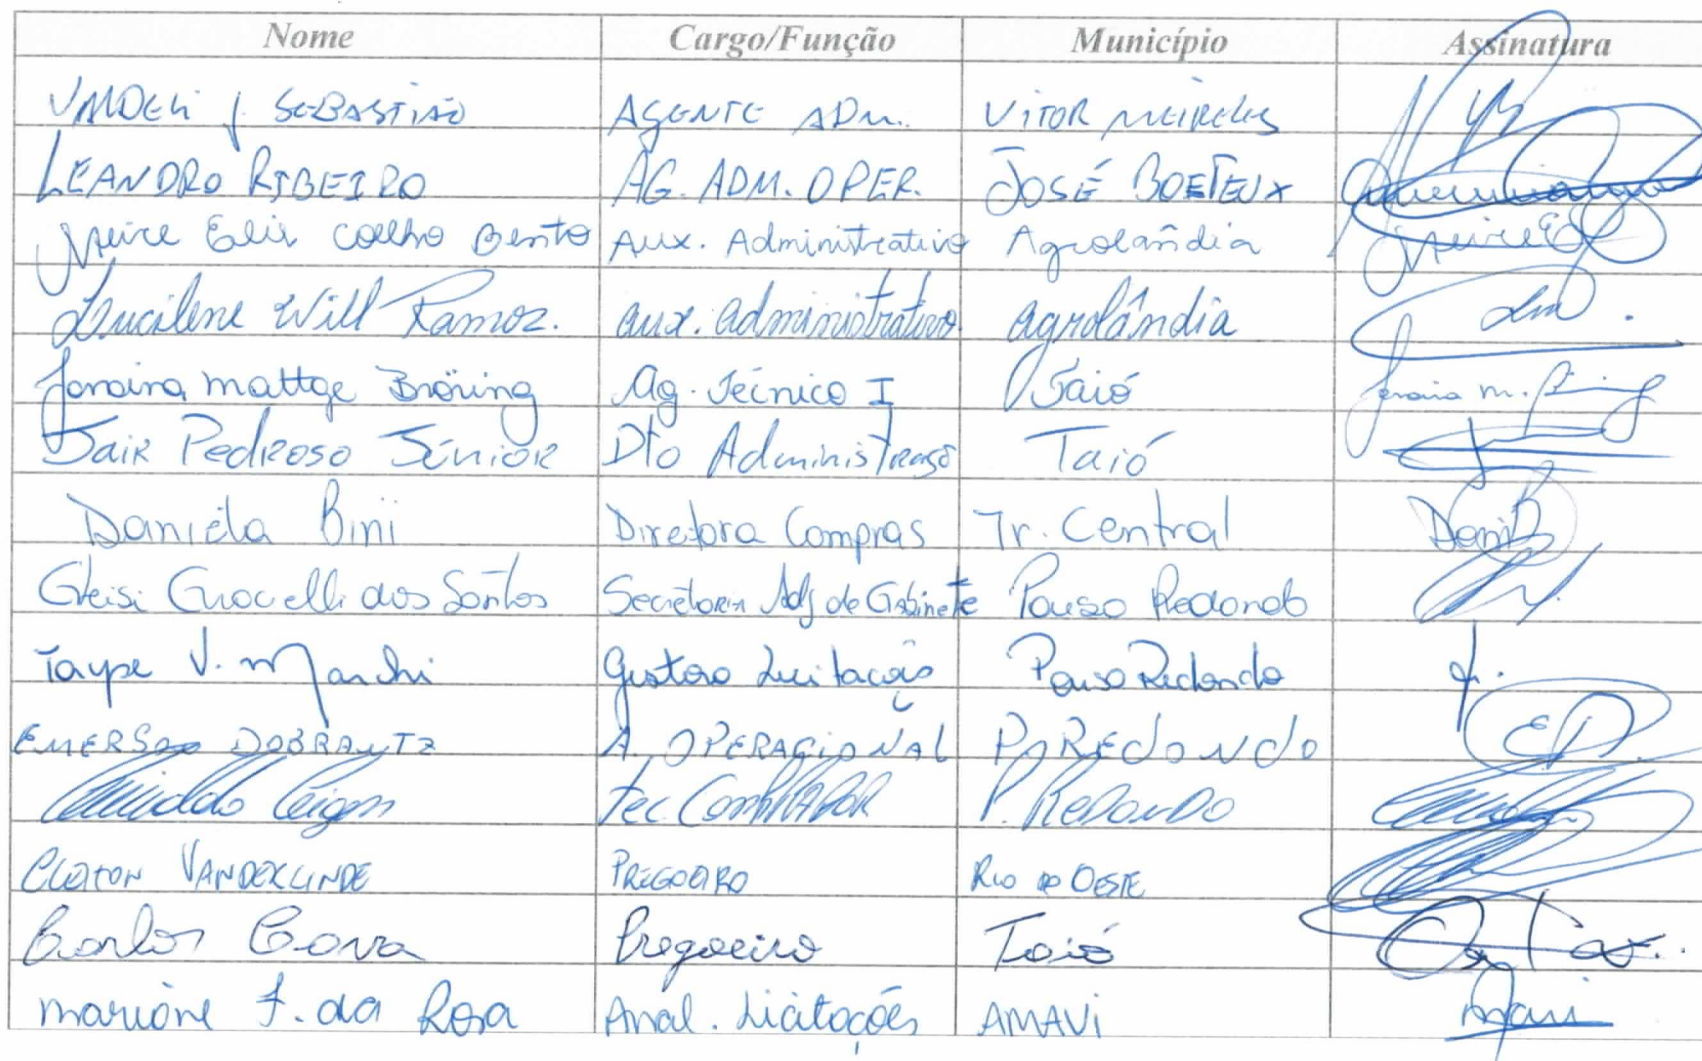 Nome Cargo/Função Município Assinatura
VALDECI J. SEBASTIÃO AGENTE ADM. VITOR MEIRELES
LEANDRO RIBEIRO AG. ADM. OPER. JOSÉ BOETEUX
Neire Elis Coelho Bento Aux. Administrativo Agrolândia
Lucilene Will Ramos. aux. administrativo agrolândia
Janaina Mattge Bröring Ag. Técnico I Taió Janaina M.
Jair Pedroso Júnior Dto Administração Taió
Daniela Bini Diretora Compras Tr. Central Dani B
Gleisi dos Santos Secretaria Adj de Gabinete Pouso Redondo
V. Marchi Licitação Pouso Redondo
EMERSON DOBRAWTZ A. OPERACIONAL P. REdoNdo ED
Tec. P. Redondo
CLEITON VANDERLINDE PREGOEIRO RIO DO OESTE
Carlos Cova Pregoeiro Taió
Marione F. da Rosa Anal. Licitações AMAVI Mari